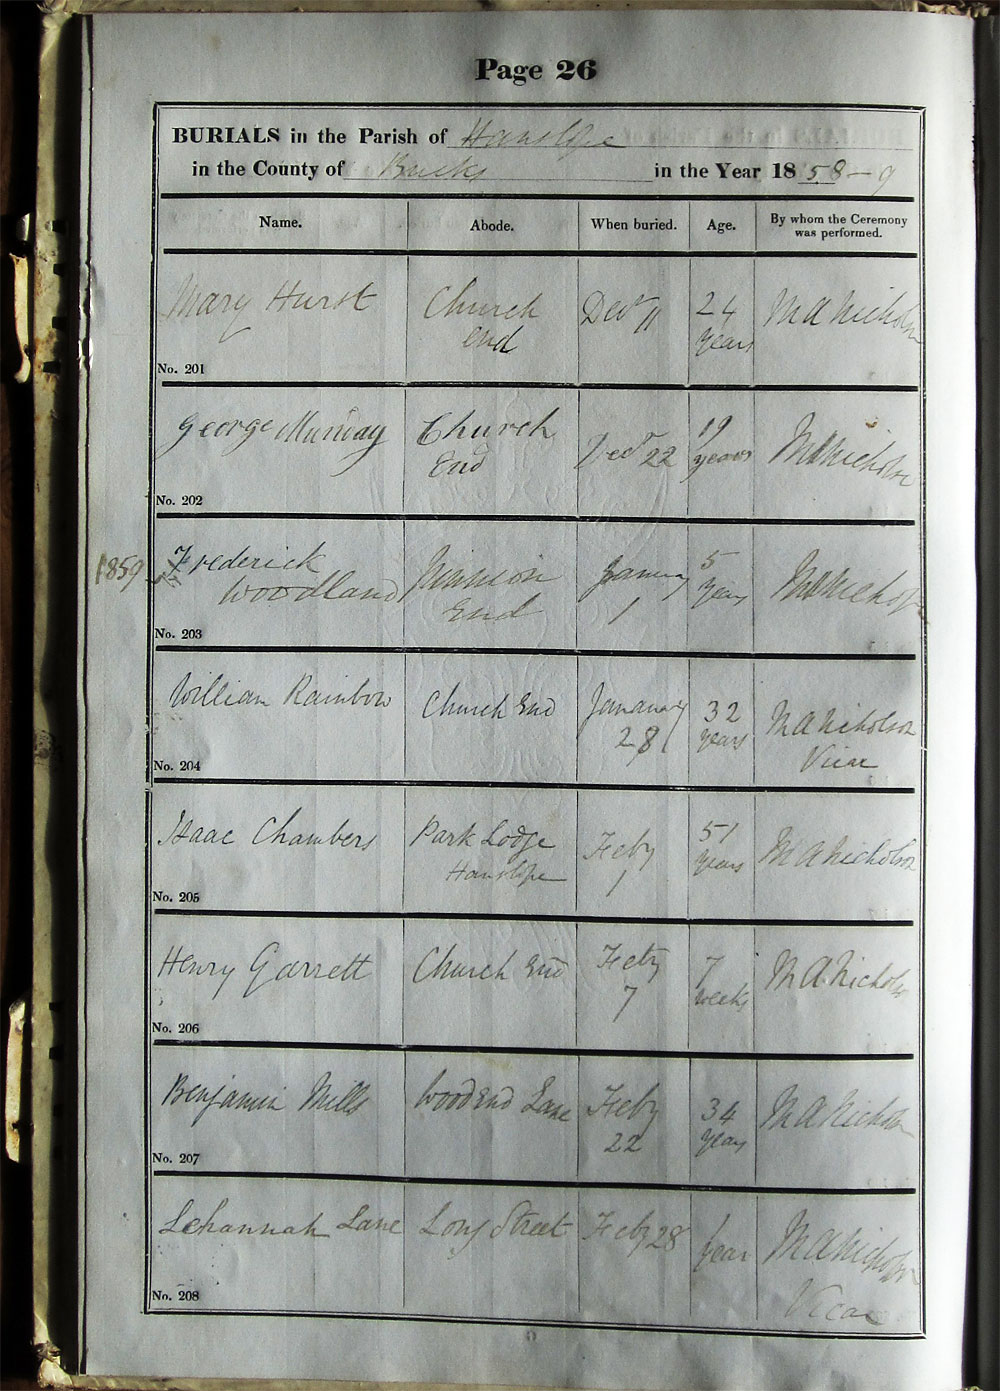 Page 26
BURIALS in the Parish of Hanslope
in the County of Bucks in the Year 1858-9
Name. Abode. When buried. Age. By whom the Ceremony
was performed.
Mary Hurst Church Decr 11 24 M A Nicholson
End years
No. 201
George Munday Church Decr 22 19 M A Nicholson
End years
No. 202
1859 Frederick January 5 M A Nicholson
Woodland End 1 years
No. 203
William Rainbow Church End January 32 M A Nicholson
28 years Vicar
No. 204
Isaac Chambers Park Lodge Feby 51 M A Nicholson
Hanslope 1 years
No. 205
Henry Garrett Church End Feby 7 M A Nicholson
7 weeks
No. 206
Benjamin Mills Wood End Lane Feby 34 M A Nicholson
22 years
No. 207
Lehannah Lane Long Street Feby 28 1 M A Nicholson
year Vicar
No. 208